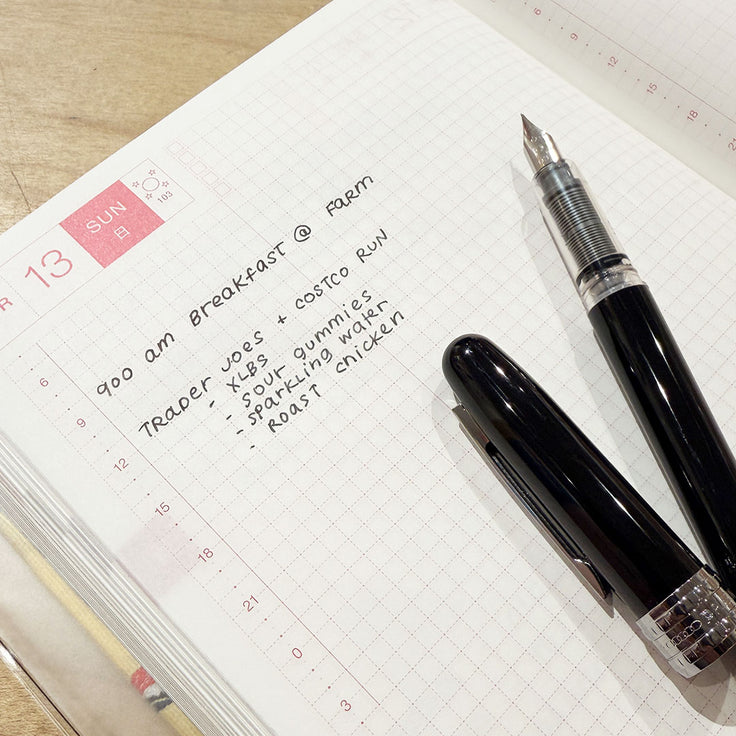 13
SUN
日
103
900 am BREAKFAST @ FARM
TRADER JOES + COSTCO RUN
- XLBS
- SOUR gummies
- SPARKLING WATER
- ROAST CHICKEN
6
9
12
15
18
21
0
3
6
9
12
15
18
21